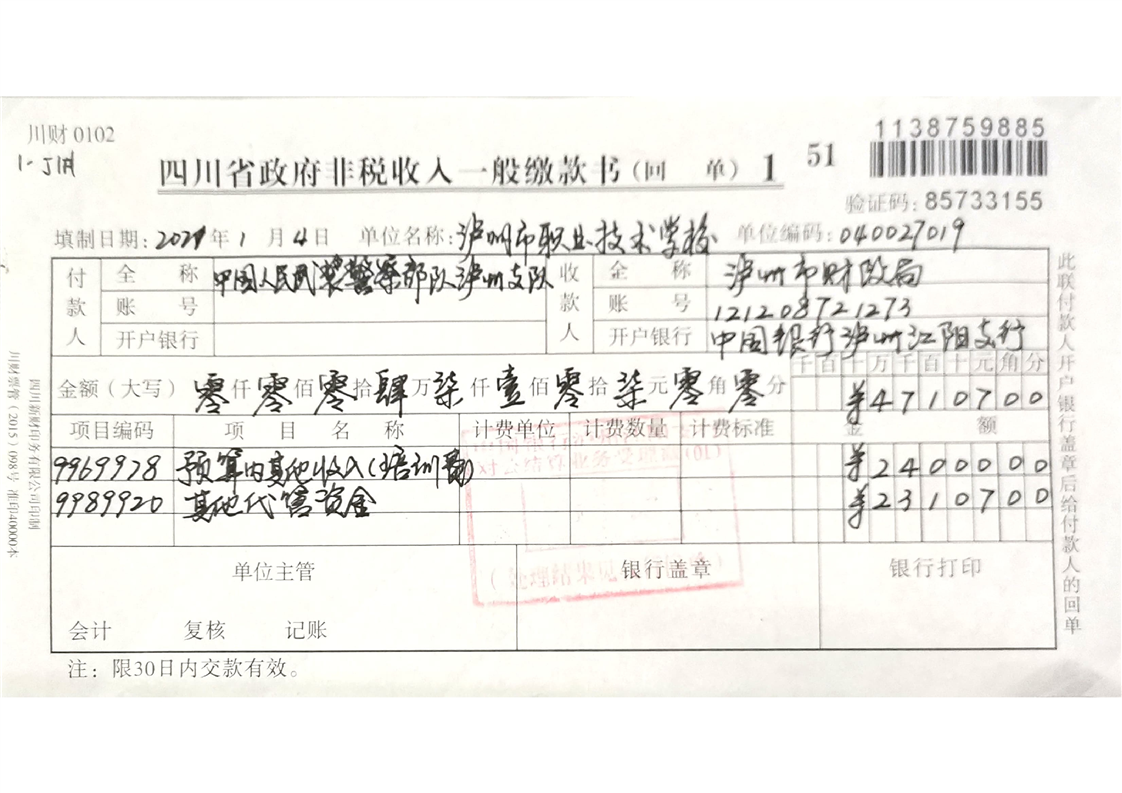 川财 0102
1138759885
四川省政府非税收入一般缴款书(回 单) 1 51
验证码: 85733155
填制日期: 2021年 1 月 4 日 单位名称: 泸州市职业技术学校 单位编码: 040027019
付款人 全 称 中国人民武装警察部队泸州支队 收款人 全 称 泸州市财政局
账 号 账 号 121208721273
开户银行 开户银行 中国银行泸州江阳支行
千百十万千百十元角分
金额(大写) 零仟零佰零拾肆万柒仟壹佰零拾柒元零角零分 ¥4710700
项目编码 项 目 名 称 计费单位 计费数量 计费标准 金 额
9969978 预算内其他收入(培训费) ¥2400000
9989920 其他代管资金 ¥2310700
对公结算业务受理章(01)
(处理结果见银行回单)
单位主管 银行盖章 银行打印
会计 复核 记账
注: 限30日内交款有效。
此联付款人开户银行盖章后给付款人的回单
川财票管(2015)098号 准印40000本
四川新财印务有限公司印制